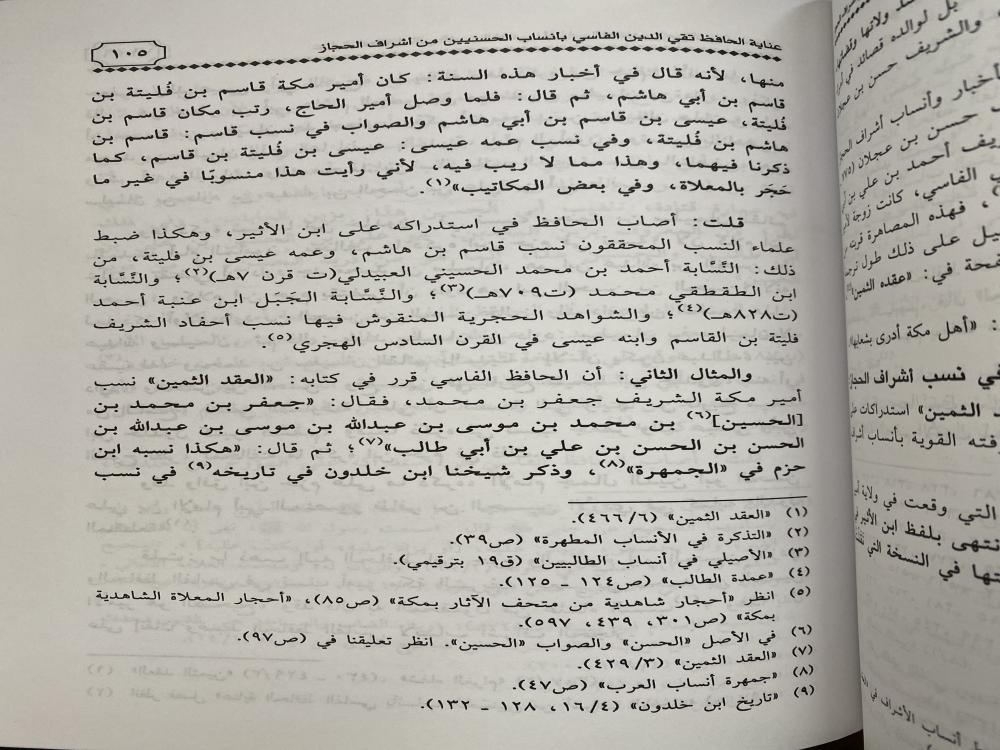 عناية الحافظ تقي الدين الفاسي بأنساب الحسنيين من أشراف الحجاز
١٠٥
منها، لأنه قال في أخبار هذه السنة: كان أمير مكة قاسم بن فُليتة بن
قاسم بن أبي هاشم، ثم قال: فلما وصل أمير الحاج، رتب مكان قاسم بن
فُليتة، عيسى بن قاسم بن أبي هاشم والصواب في نسب قاسم: قاسم بن
هاشم بن فُليتة، وفي نسب عمه عيسى: عيسى بن فُليتة بن قاسم، كما
ذكرنا فيهما، وهذا مما لا ريب فيه، لأني رأيت هذا منسوبًا في غير ما
حَجَر بالمعلاة، وفي بعض المكاتيب»(١)
قلت: أصاب الحافظ في استدراكه على ابن الأثير، وهكذا ضبط
علماء النسب المحققون نسب قاسم بن هاشم، وعمه عيسى بن فليتة، من
ذلك: النَّسَّابة أحمد بن محمد الحسيني العبيدلي(ت قرن ٧هـ)(٢)؛ والنَّسَّابة
ابن الطقطقي محمد (ت٧٠٩هـ)(٣)؛ والنَّسَّابة الجَبَل ابن عنبة أحمد
(ت٨٢٨هـ)(٤)؛ والشواهد الحجرية المنقوش فيها نسب أحفاد الشريف
فليتة بن القاسم وابنه عيسى في القرن السادس الهجري(٥)
والمثال الثاني: أن الحافظ الفاسي قرر في كتابه: «العقد الثمين» نسب
أمير مكة الشريف جعفر بن محمد، فقال: «جعفر بن محمد بن
[الحسين](٦) بن محمد بن موسى بن عبدالله بن موسى بن عبدالله بن
الحسن بن الحسن بن علي بن أبي طالب»(٧)؛ ثم قال: «هكذا نسبه ابن
حزم في «الجمهرة»(٨)، وذكر شيخنا ابن خلدون في تاريخه(٩) في نسب
(١) «العقد الثمين» (٤٦٦/٦).
(٢) «التذكرة في الأنساب المطهرة» (ص٣٩).
(٣) «الأصيلي في أنساب الطالبيين» (ق١٩ بترقيمي).
(٤) «عمدة الطالب» (ص١٢٤ - ١٢٥).
(٥) انظر «أحجار شاهدية من متحف الآثار بمكة» (ص٨٥)، «أحجار المعلاة الشاهدية
بمكة» (ص٣٠١، ٤٣٩، ٥٩٧).
(٦) في الأصل «الحسن» والصواب «الحسين». انظر تعليقنا في (ص٩٧).
(٧) «العقد الثمين» (٤٢٩/٣).
(٨) «جمهرة أنساب العرب» (ص٤٧).
(٩) «تاريخ ابن خلدون» (١٦/٤، ١٢٨ - ١٣٢).
بل لوالده قصائد في
والشريف حسن بن عجلان
أخبار وأنساب أشراف الحجاز
حسن بن عجلان
أحمد بن علي بن
الفاسي، كانت زوجة
، فهذه المصاهرة
على ذلك طول
في: «عقده الثمين»
: «أهل مكة أدرى بشعابها
في نسب أشراف الحجاز
الثمين» استدراكات
القوية بأنساب
التي وقعت في ولاية
بلفظ ابن الأثير
في النسخة التي
أنساب الأشراف في